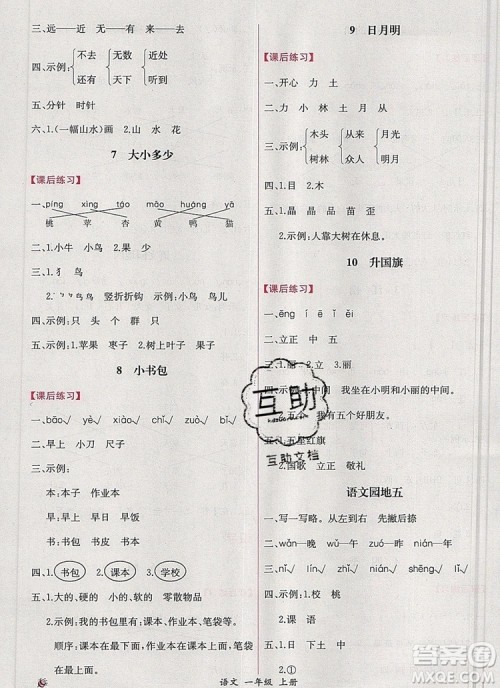 三、远——近 无——有 来——去
四、示例: 不去 无数 近处
还有 天下 还是
五、分针 时针
六、1.(一幅山水)画 2.山 水 花
7 大小多少
【课后练习】
一、píng xìng táo māo yā huáng
桃 苹 杏 黄 鸭 猫
二、1.小牛 小鸟 2.果 少
三、1.犭 鸟
2.示例: 鸟 竖折折钩 示例:小鸟 鸟儿
四、示例:只 头 个 群 只
五、示例:1.苹果 枣子 2.果子 桃子
8 小书包
【课后练习】
一、bāo√ yè√ chǐ√ zǎo√ zuò√
二、早上 小刀 尺子
三、1.早 2.早上 早上
3.示例:
本:本子 作业本
早:早早 早上 早饭
书:书皮 书本 书包
四、1.书包 2.课本 3.学校
五、1.大的、硬的 小的、软的 零散物品
2.示例:我的书包里有课本、作业本、笔袋等。
顺序:课本在最下面,作业本在课本上面,笔袋
在最上面。
9 日月明
【课后练习】
一、1.开心 力 土
2.力 小 林 土 月 从
三、示例: 木头 从来 月光
树林 众人 明月
四、1.日 2.木
五、1.晶 晶 品 苗 歪
2.示例:人靠大树在休息。
10 升国旗
【课后练习】
一、1.ēng ī ē
2.立正 中 五
三、1.丽 2.立 3.丽
四、示例:中间 我坐在小明和小丽的中间。
五个 我有五个好朋友。
五、1.五星红旗
2.国歌 立正 敬礼
语文园地五
一、写一写略。从左到右 先撇后捺
二、wǎn√ wǎn√
三、nǐ√ shēng√
四、示例:1.校 桃
2.课 语
五、1.日
2.①
互助
互助文档
语文 一年级 上册